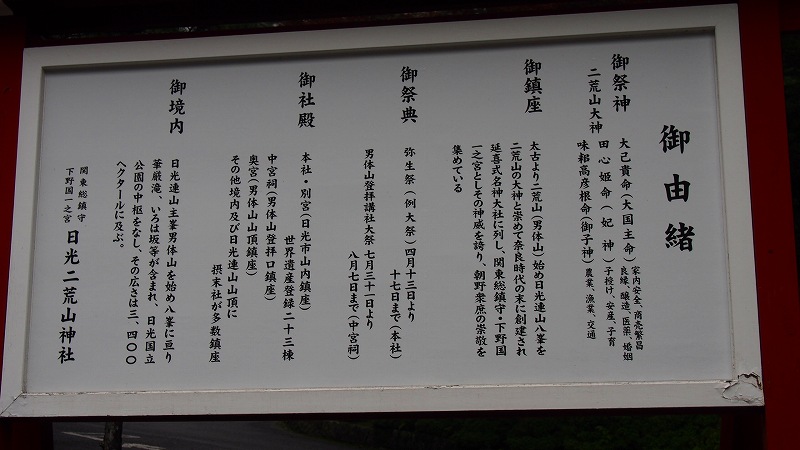 御由緒
御祭神
二荒山大神
大己貴命(大国主命)
家内安全、商売繁昌
良縁、醸造、医薬、婚姻
田心姫命(妃神)
子授け、安産、子育
味耜高彦根命(御子神)
農業、漁業、交通
御鎮座
太古より二荒山(男体山)始め日光連山八峯を
二荒山の大神と崇めて奈良時代の末に創建され
延喜式名神大社に列し、関東総鎮守・下野国
一之宮としその神威を誇り、朝野衆庶の崇敬を
集めている
御祭典
弥生祭(例大祭)四月十三日より
十七日まで(本社)
男体山登拝講社大祭 七月三十一日より
八月七日まで(中宮祠)
御社殿
本社・別宮(日光市山内鎮座)
世界遺産登録二十三棟
中宮祠(男体山登拝口鎮座)
奥宮(男体山山頂鎮座)
その他境内及び日光連山山頂に
摂末社が多数鎮座
御境内
日光連山主峯男体山を始め八峯に亘り
華厳滝、いろは坂等が含まれ、日光国立
公園の中枢をなし、その広さは三、四〇〇
ヘクタールに及ぶ。
関東総鎮守
下野国一之宮
日光二荒山神社